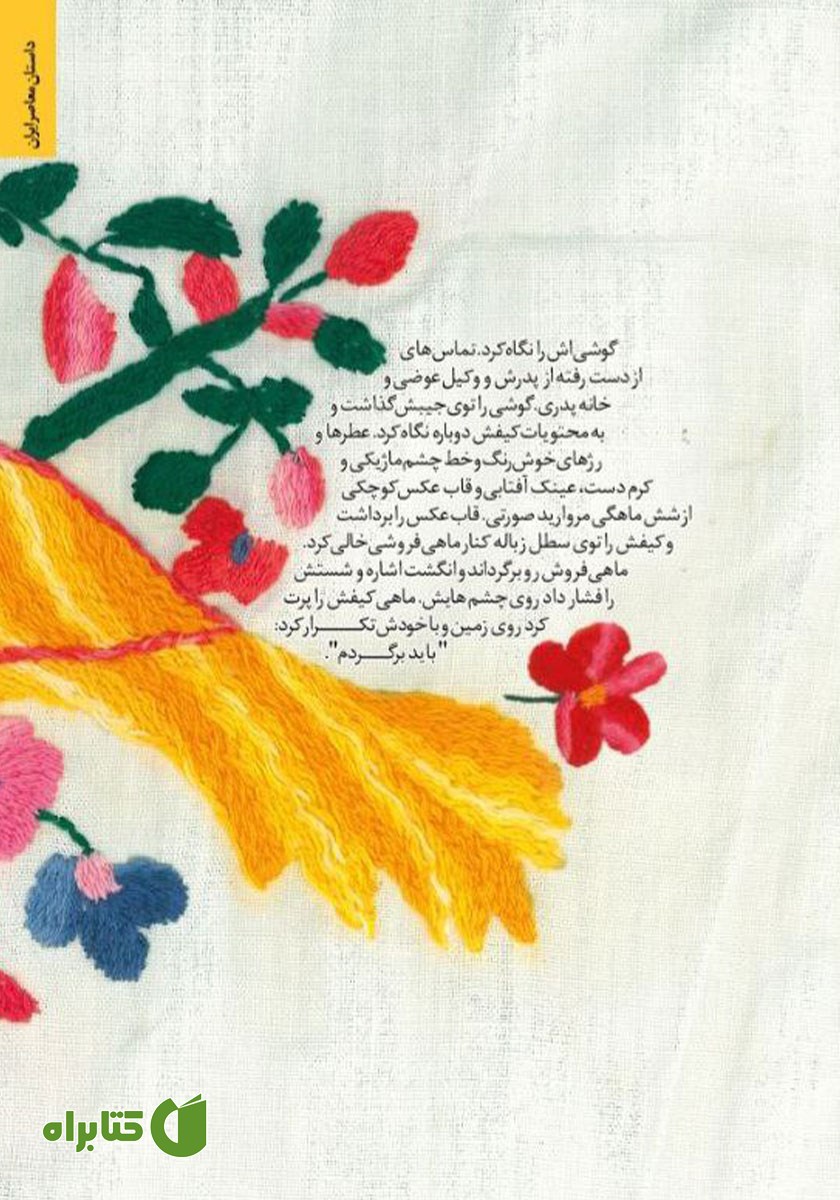 داستان معاصر ایران
گوشی‌اش را نگاه کرد. تماس‌های
از دست رفته از پدرش و وکیل عوضی و
خانه پدری. گوشی را توی جیبش گذاشت و
به محتویات کیفش دوباره نگاه کرد. عطرها و
رژهای خوش‌رنگ و خط چشم ماژیکی و
کرم دست، عینک آفتابی و قاب عکس کوچکی
از شش ماهگی مروارید صورتی. قاب عکس را برداشت
و کیفش را توی سطل زباله کنار ماهی‌فروشی خالی کرد.
ماهی‌فروش رو برگرداند و انگشت اشاره و شستش
را فشار داد روی چشم‌هایش. ماهی کیفش را پرت
کرد روی زمین و با خودش تکـــــرار کرد:
"باید برگـــــردم".
کتابراه